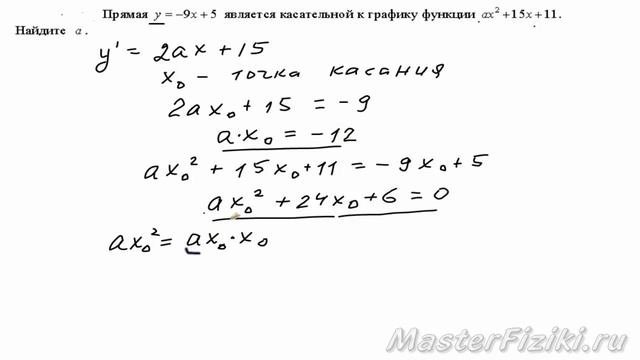 Прямая y = −9x + 5 является касательной к графику функции ax² +15x +11.
Найдите a .
y' = 2ax + 15
x₀ - точка касания
2ax₀ + 15 = -9
a·x₀ = -12
ax₀² + 15x₀ + 11 = -9x₀ + 5
ax₀² + 24x₀ + 6 = 0
ax₀² = ax₀·x₀
MasterFiziki.ru